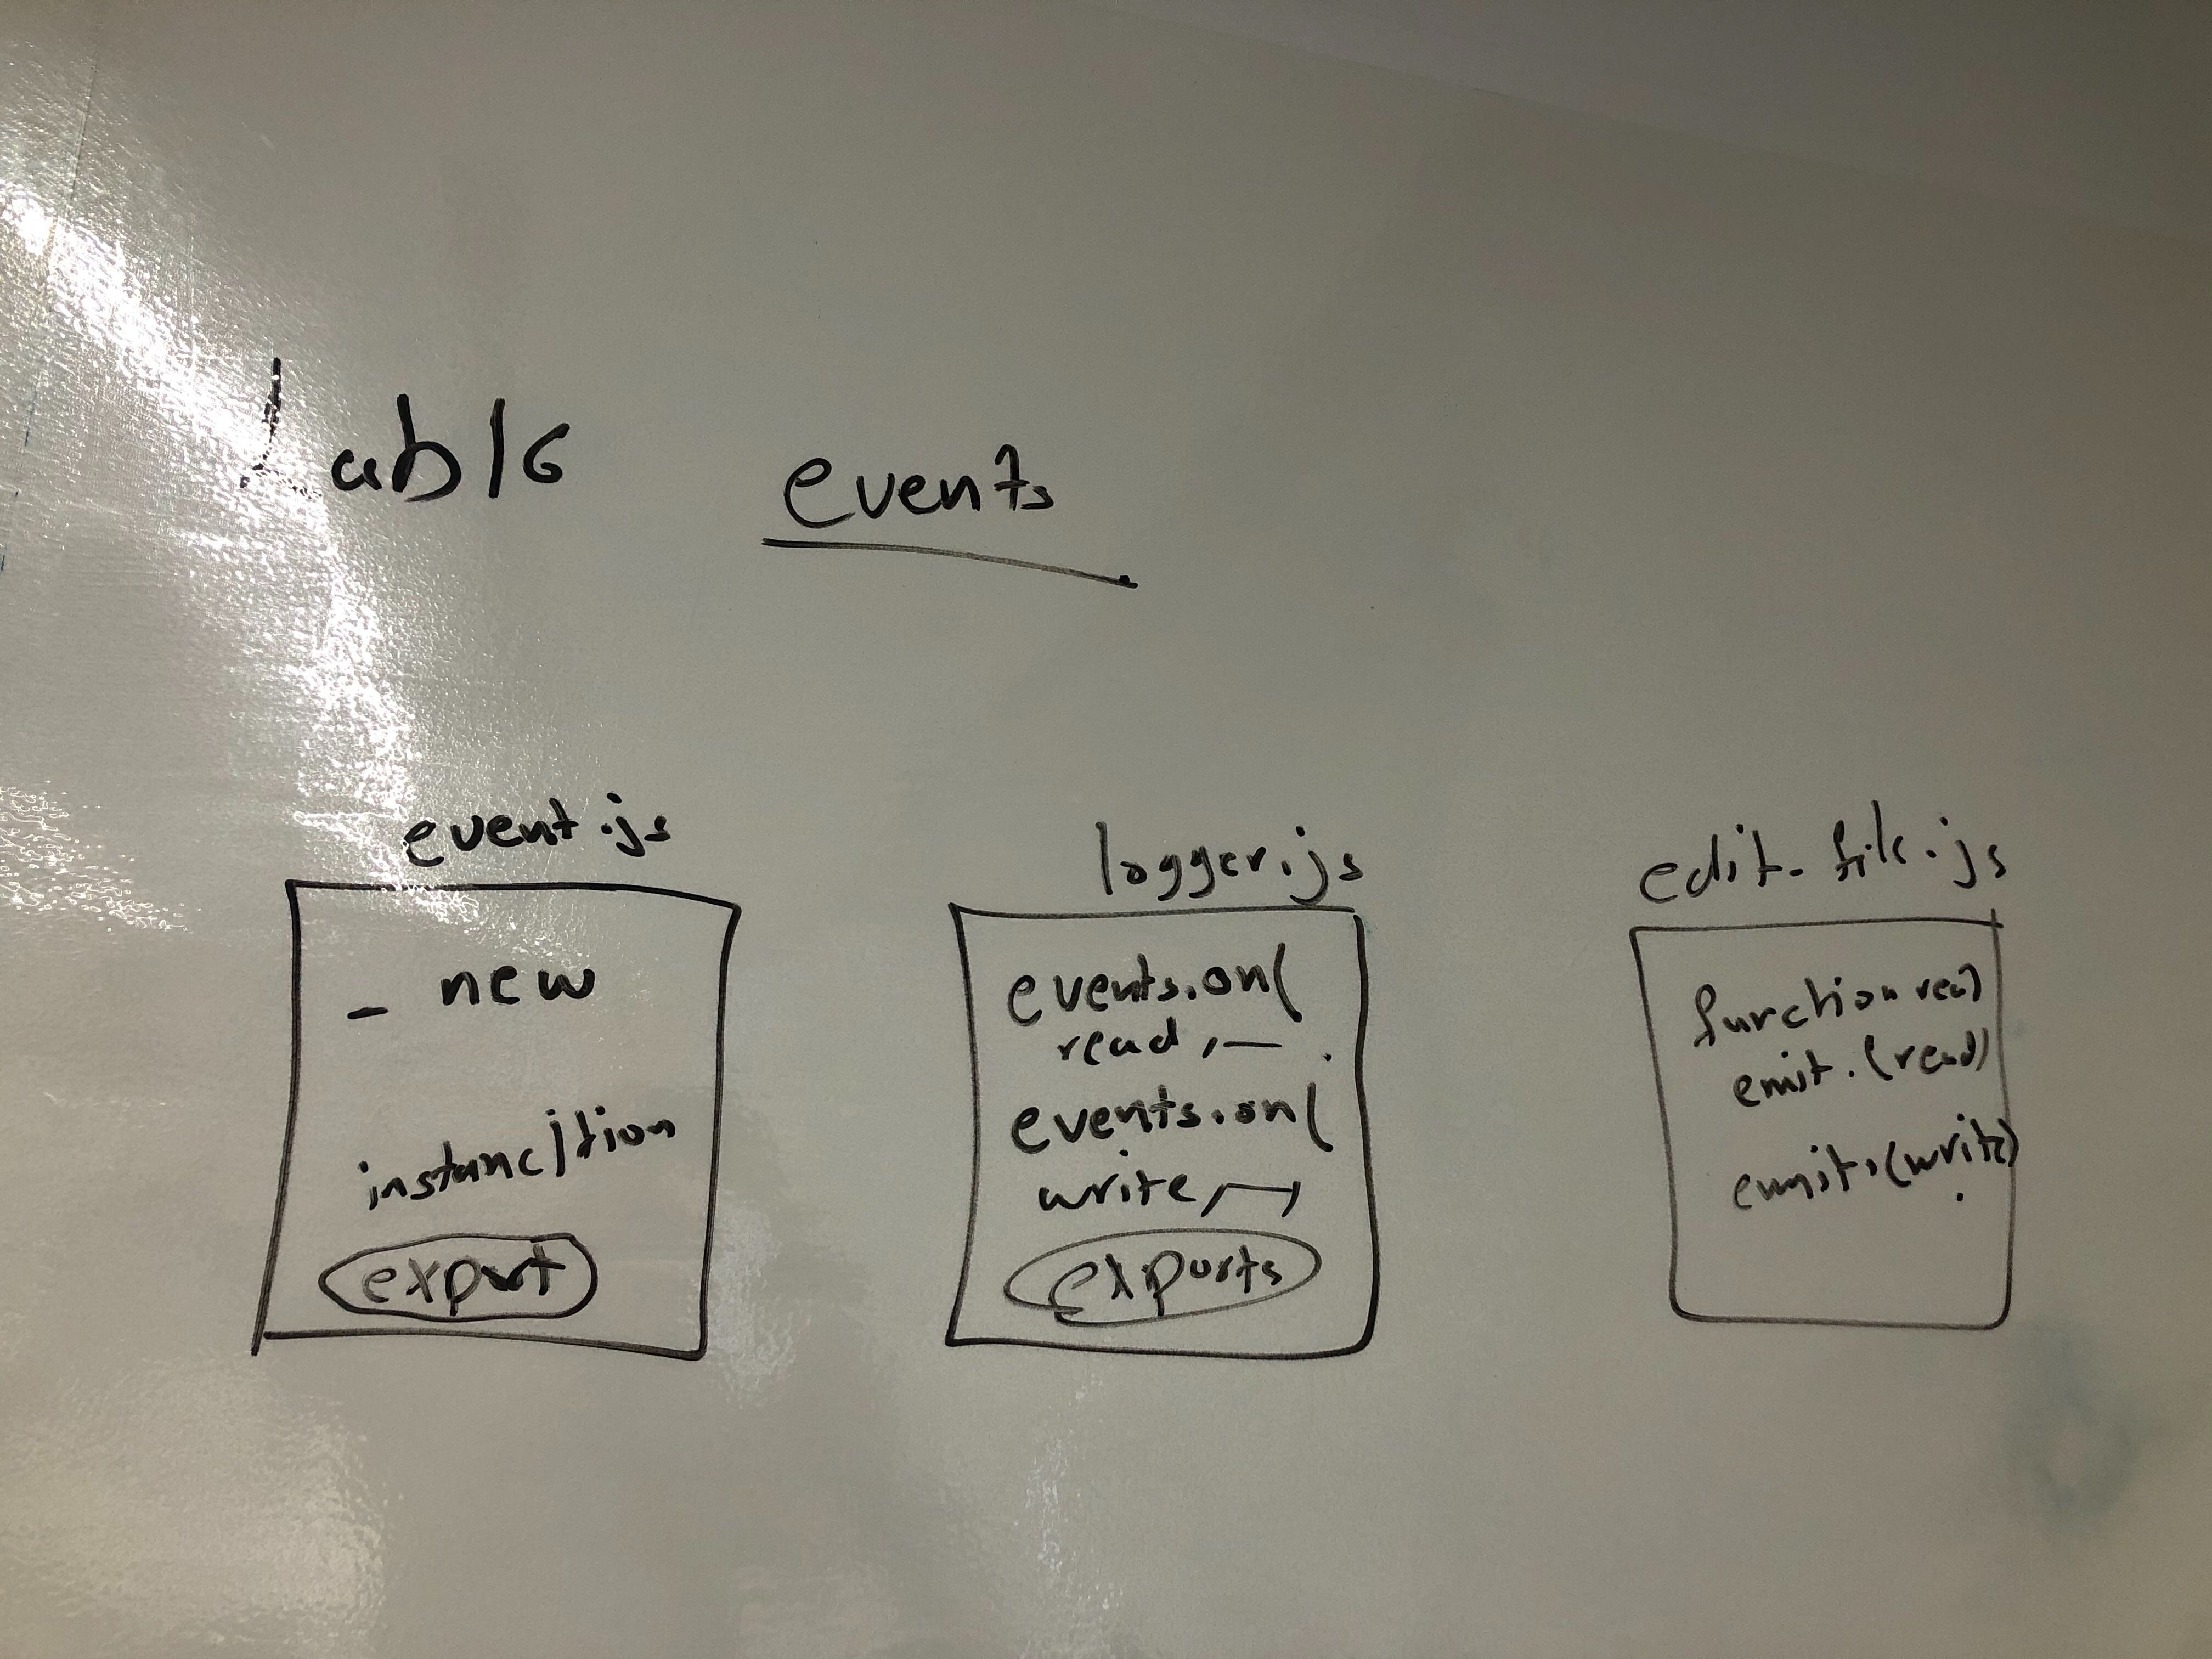 Lab 16
events
event.js
- new
instanc/tion
export
logger.js
events.on(
read, —
events.on(
write, —)
exports
edit-file.js
function read
emit.(read)
emit.(write)